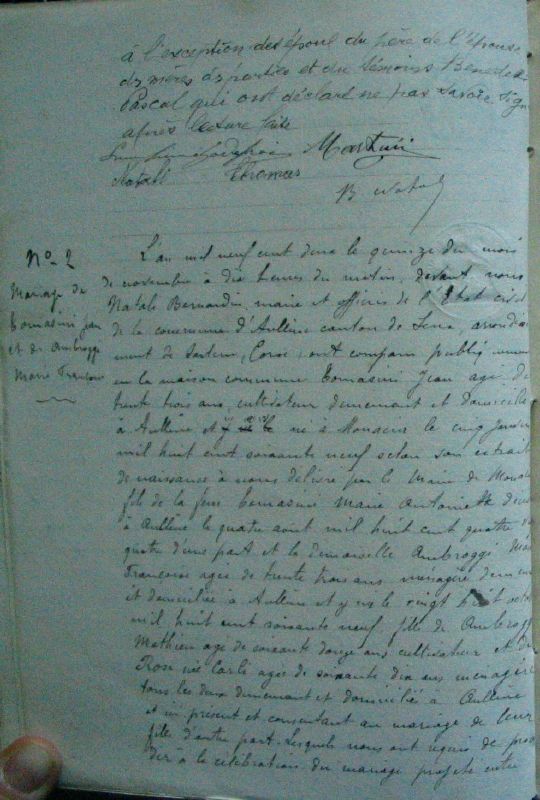 à l'exception des époux du père de l'épouse
des mères des parties et du témoins Benedetti
Pascal qui ont déclaré ne pas savoir sign
après lecture faite
Martini
Natali Thomas
B. Natal
N° 2
Mariage de
Tomasini Jean
et de Ambroggi
Marie Françoise
L'an mil neuf cent deux le quinze du mois
de novembre à dix heures du matin, devant nous
Natali Bernardin, maire et officier de l'Etat civil
de la commune d'Aullène canton de Serra, arrondis
ment de Sartène, Corse; ont comparu publiquement
en la maison commune Tomasini Jean agé de
trente trois ans, cultivateur demeurant et domicilié
à Aullène né à Monaccia le cinq janvier
mil huit cent soixante neuf selon son extrait
de naissance à nous délivré par le Maire de
fils de la feue Tomasini Marie Antoinette décédée
à Aullène le quatre août mil huit cent quatre vingt
quatre d'une part et la demoiselle Ambroggi Marie
Françoise agée de trente trois ans ménagère demeu
et domiciliée à Aullène et y née le vingt huit octo
mil huit cent soixante neuf, fille de Ambroggi
Mathieu agé de soixante douze ans, cultivateur et de
Rose née Carli agée de soixante dix ans ménagère
tous les deux demeurant et domicilié à Aullène
et ici présent et consentant au mariage de leur
fille d'autre part. Lesquels nous ont requis de procé
der à la célébration du mariage projeté entre